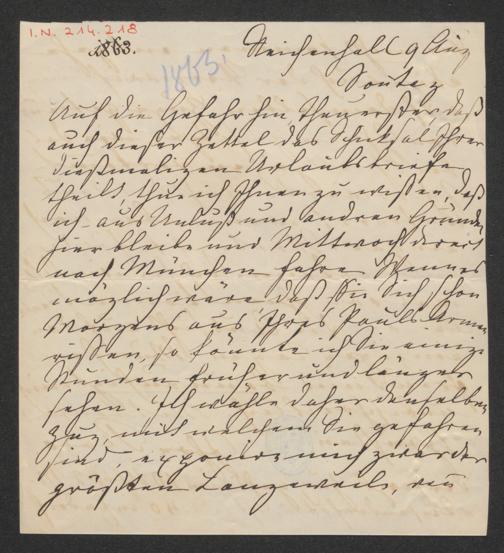 I.N. 214.218
1863.
1863
Reichenhall 9 Aug
Sontag
Auf die Gefahr hin Theuerster daß
auch dieser Zettel das Schiksal Ihrer
dießmaligen Urlaubsbriefe
theilt, thue ich Ihnen zu wißen, daß
ich aus Unlust und andren Gründen
hier bleibe und Mittwoch
nach München fahre. Wenn es
möglich wäre daß Sie Sich schon
Morgens aus Ihres Pauls Armen
rissen, so könnte ich Sie einige
Stunden früher und länger
sehen. Ich wähle daher denselben
Zug, mit welchem Sie gefahren
sind, exponire mich zwar der
größten Langeweile,